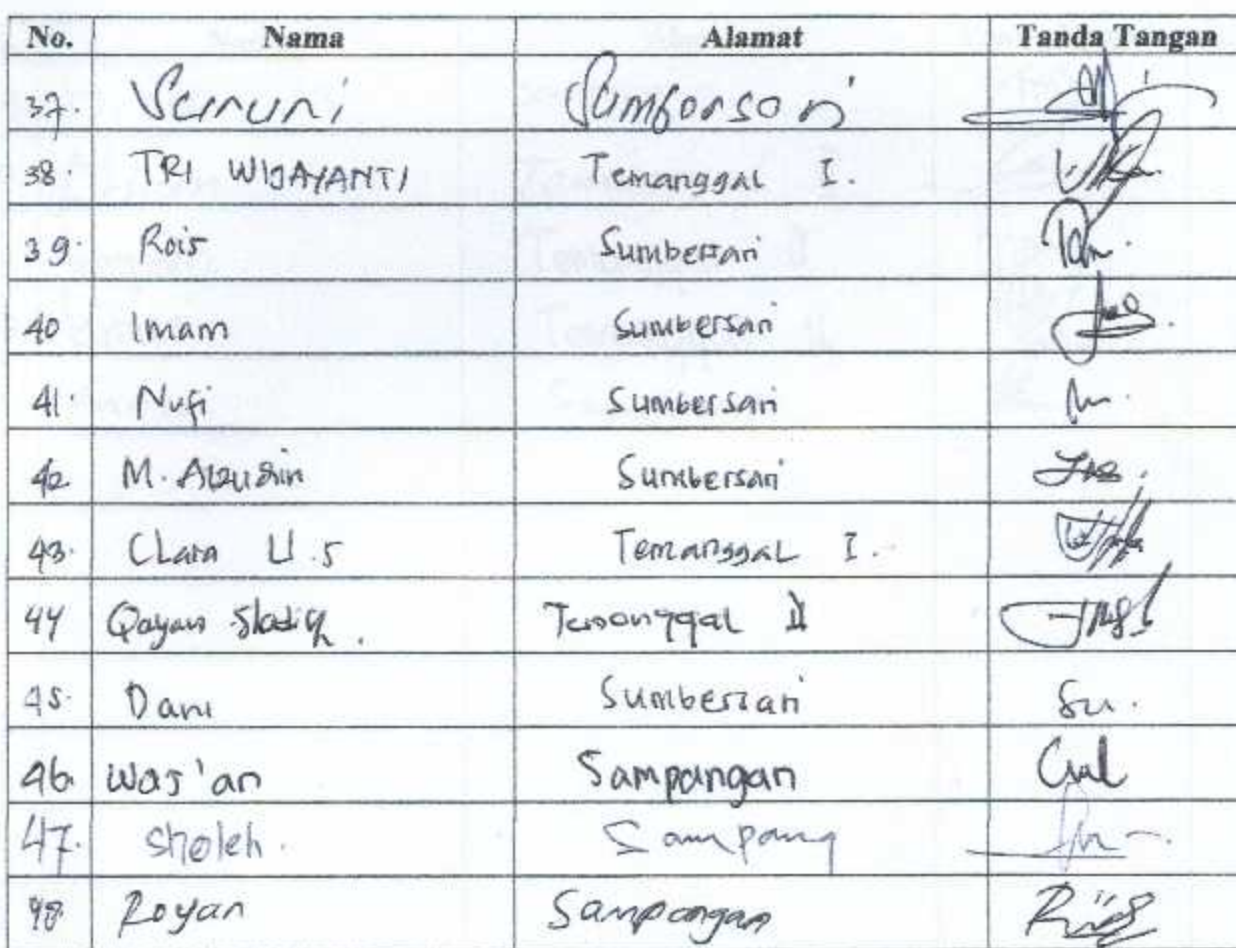 No. Nama Alamat Tanda Tangan
37.
38. TRI WIJAYANTI Temanggal I.
39. Rois Sumbersari
40 Imam Sumbersari
41. Nufi Sumbersari
42 M. Sumbersari
43. Clara U.S Temanggal I.
44 Qayan Temanggal II
45. Dani Sumbersari
46. Was'an Sampangan
47. Sholeh. Sampang
48. Royan Sampangan